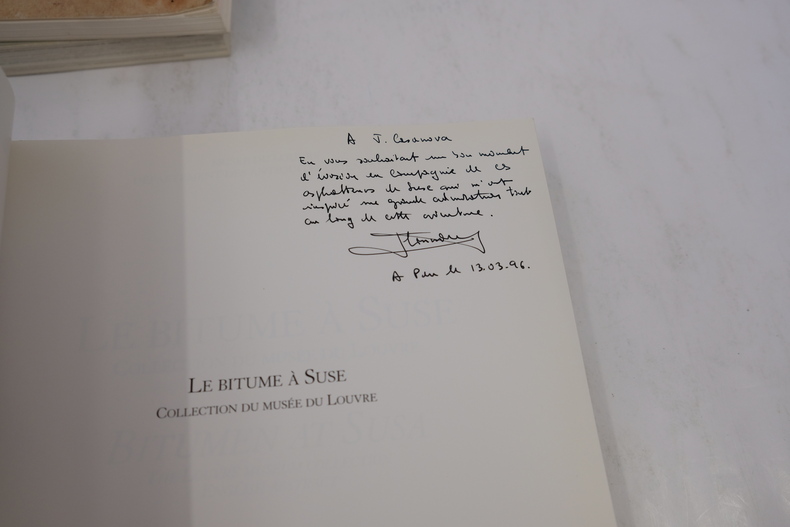 A J. Casanova
En vous souhaitant un bon moment
d'évasion en compagnie de ces
asphalteurs de Suse qui m'ont
inspiré une grande admiration tout
au long de cette aventure.
A Pau le 13.03.96.
LE BITUME À SUSE
COLLECTION DU MUSÉE DU LOUVRE